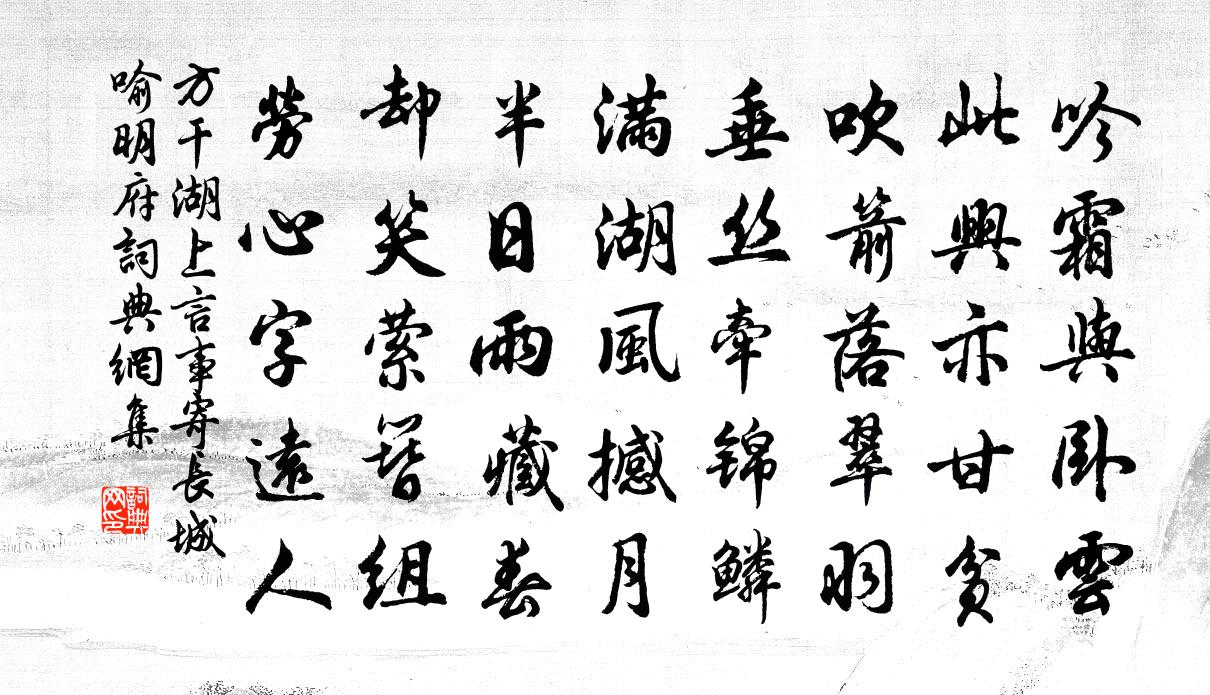 吟霜與臥雲
此興亦甘貧
吹箭落翠羽
垂丝牽锦鳞
滿湖風撼月
半日雨藏春
却笑萦簪组
勞心字遠人
方干湖上言事寄長城
喻明府詞典網集
詞典
网印